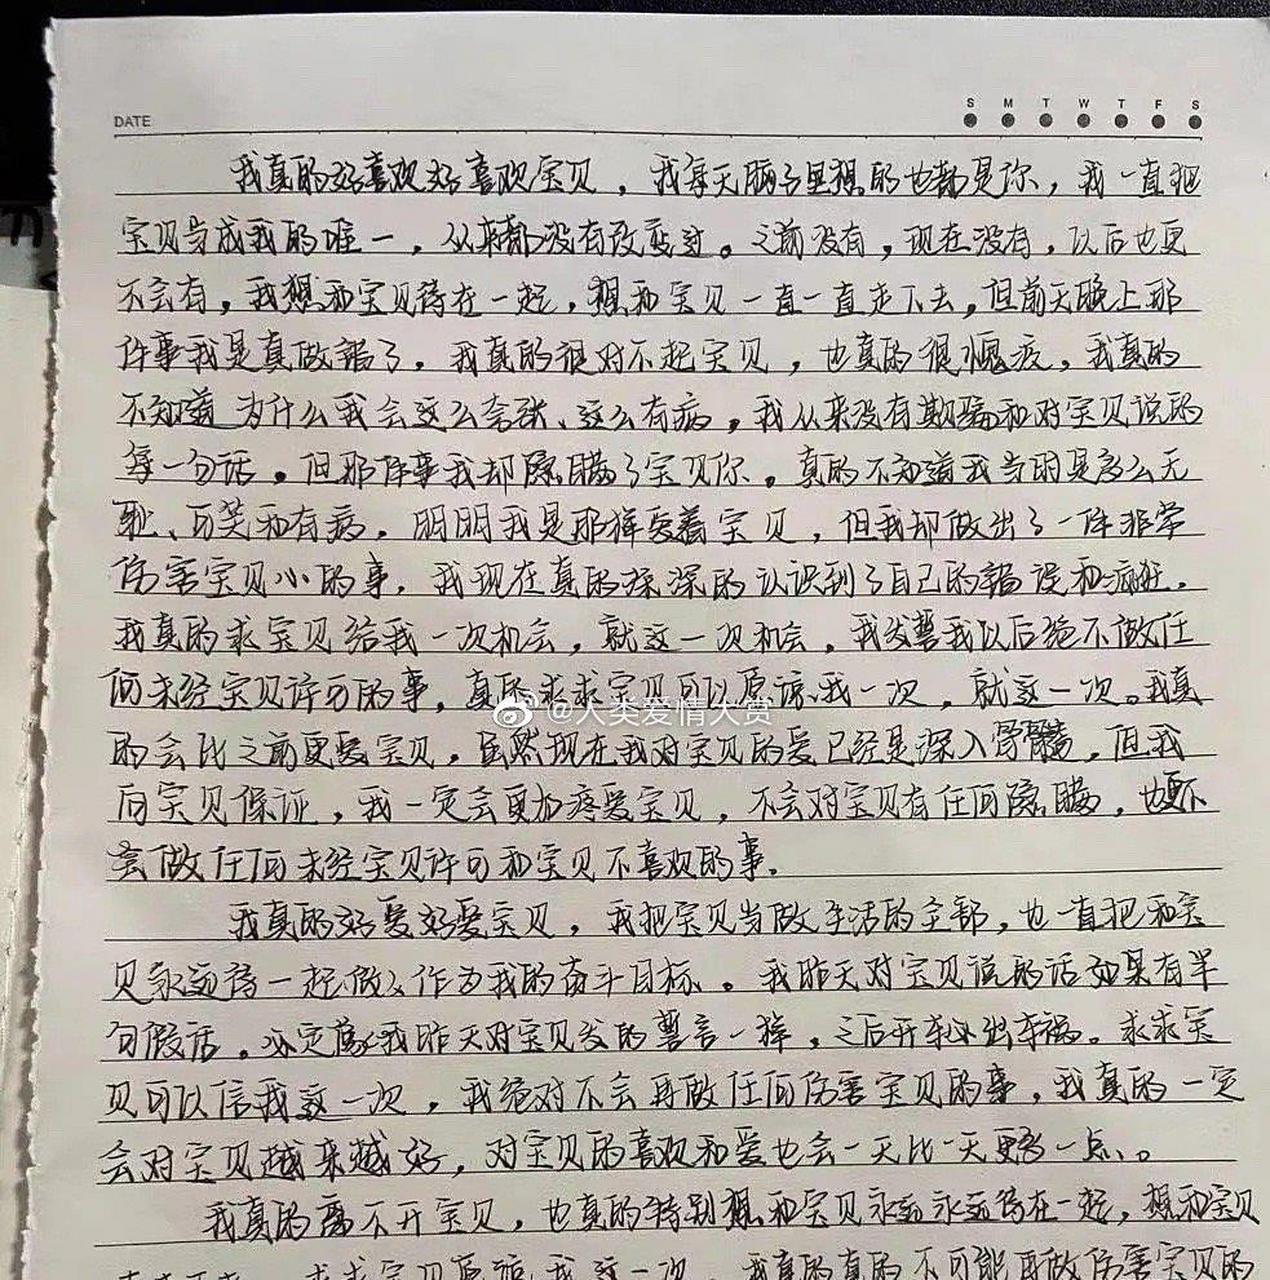 DATE
S M T W T F S
我真的好喜欢好喜欢宝贝，我每天脑子里想的也都是你，我一直把
宝贝当成我的唯一，从来都没有改变过。之前没有，现在没有，以后也更
不会有，我想和宝贝待在一起，想和宝贝一直一直走下去，但前天晚上那
件事我是真做错了，我真的很对不起宝贝，也真的很愧疚，我真的
不知道为什么我会这么夸张、这么有病，我从来没有欺骗和对宝贝说的
每一句话。但那件事我却隐瞒了宝贝你。真的不知道我当时是多么无
耻、可笑和有病，明明我是那样爱着宝贝，但我却做出了一件非常
伤害宝贝心的事，我现在真的深深的认识到了自己的错误和疯狂，
我真的求宝贝给我一次机会，就这一次机会，我发誓我以后绝不做任
何未经宝贝许可的事，真的求求宝贝可以原谅我一次，就这一次。我真
的会比之前更爱宝贝，虽然现在我对宝贝的爱已经是深入骨髓，但我
向宝贝保证，我一定会更加疼爱宝贝，不会对宝贝有任何隐瞒，也更不
会做任何未经宝贝许可和宝贝不喜欢的事。
我真的好爱好爱宝贝，我把宝贝当做生活的全部，也一直把和宝
贝永远待一起做作为我的奋斗目标。我昨天对宝贝说的话如果有半
句假话，必定像我昨天对宝贝发的誓言一样，之后开车必出车祸。求求宝
贝可以信我这一次，我绝对不会再做任何伤害宝贝的事，我真的一定
会对宝贝越来越好，对宝贝的喜欢和爱也会一天比一天更多一点、。
我真的离不开宝贝，也真的特别想和宝贝永远永远待在一起，想和宝贝
求求宝贝原谅我这一次，我真的真的不可能再做伤害宝贝的
@人类爱情大赏